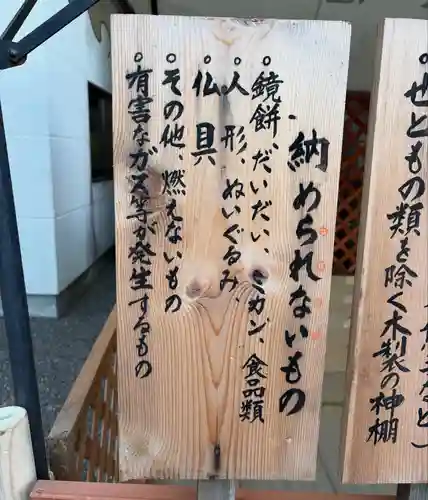 納められないもの
。鏡餅、だいだい、ミカン、食品類
。人形、ぬいぐるみ、
。仏具
。その他、燃えないもの
。有害なガス等が発生するもの
など)
。せともの類を除く木製の神棚